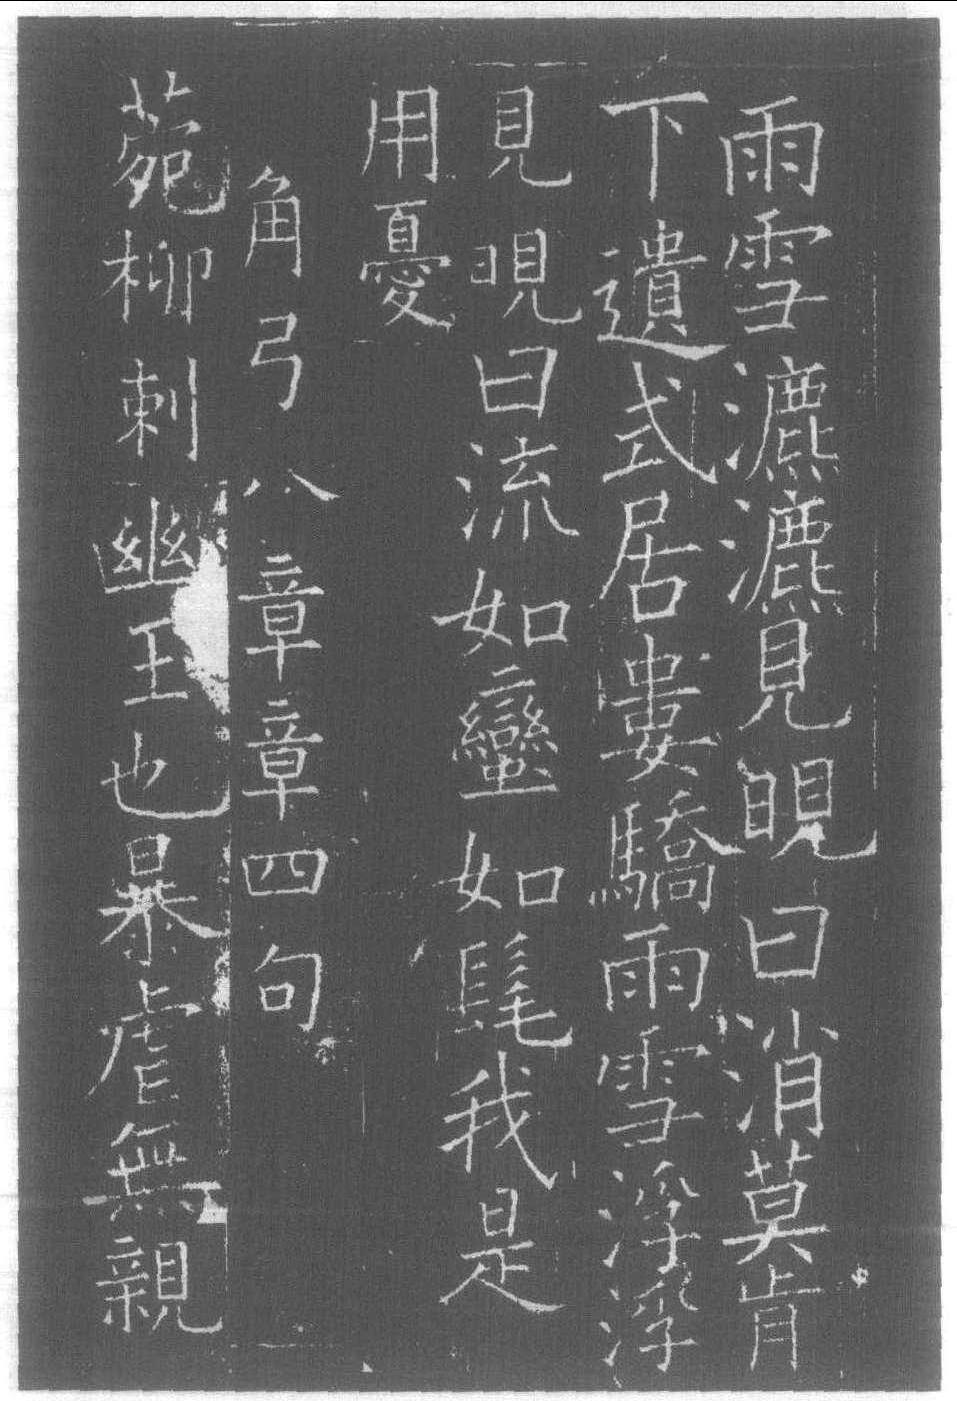 雨雪瀌瀌見晛曰消莫肯
下遺式居婁驕雨雪浮浮
見晛曰流如蠻如髦我是
用憂
角弓八章章四句
菀柳刺幽王也暴虐無親